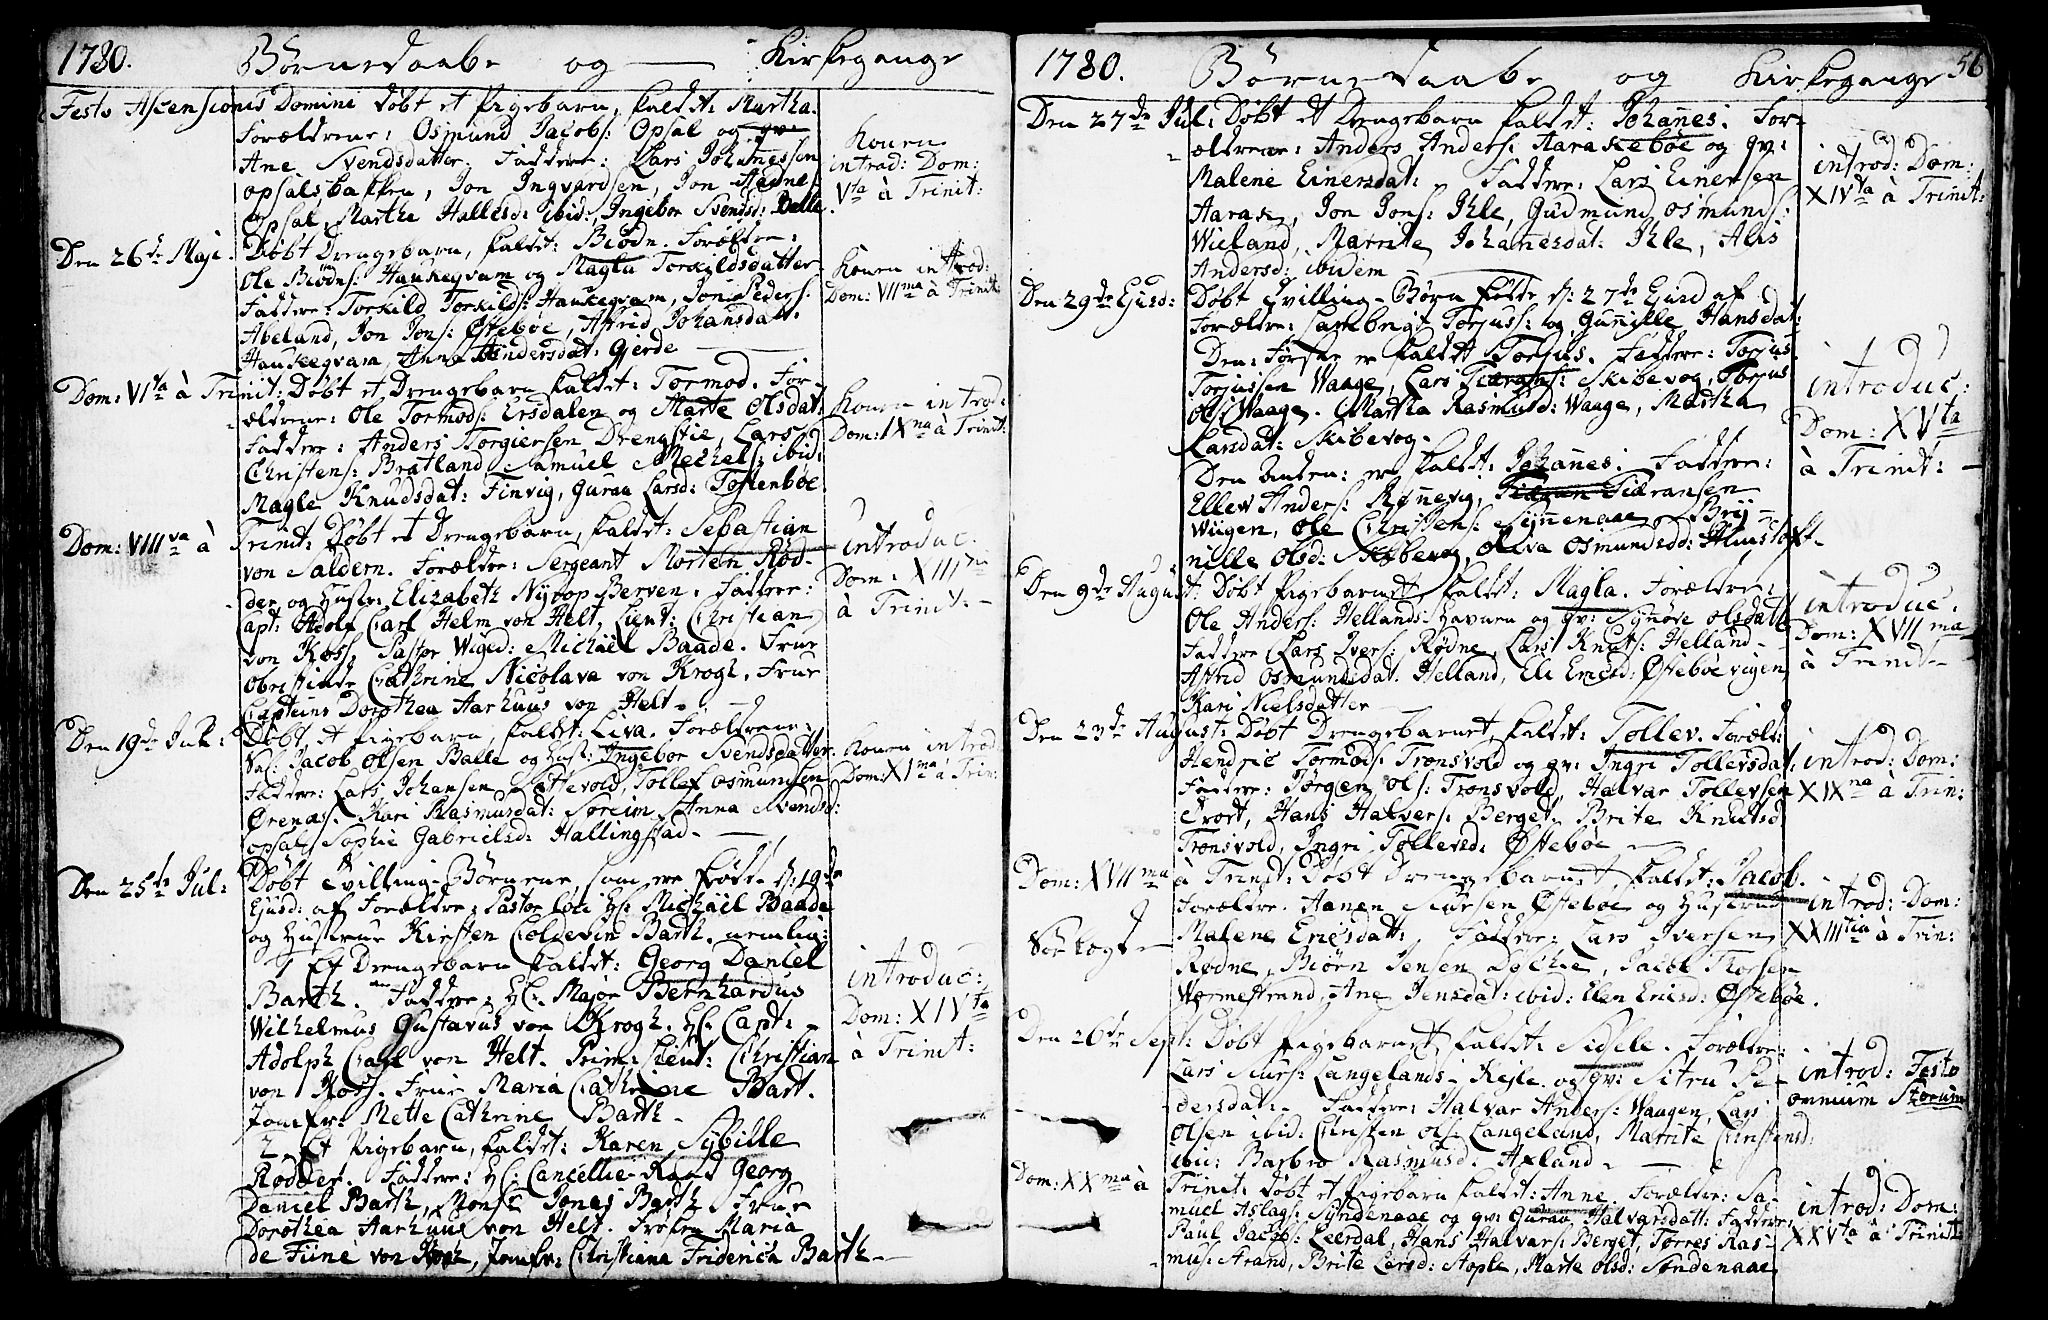 1780. Børnedaabe og — Kirkegange
Festo Ascensionis Domini døbt et Pigebarn, kaldet: Martha.
Forældrene: Osmund Jacobs: Opsal og qv:
Ane Svendsdatter. Faddere: Lars Johannessen
Opsalsbakken, Jon Ingvardsen, Jon Aadnes:
Opsal, Martha Hallesd: ibid:, Ingebor Svendsd: Balle.
Konen
introd: Dom:
Vta à Trinit:
Den 26de Maji. Døbt Drengebarn, kaldet: Biødn. Forældre:
Ole Biødns: Haukeqvam og Magla Torkildsdatter
Faddere: Torkild Torkilds: Haukeqvam, Jon Peders:
Abeland, Jon Jons: Østebøe, Astrid Johansdatt:
Haukeqvam, Anna Andersdat: Gjerde —
Konen introd:
Dom: VIIma à Trinit:
Dom: VIta à Trinit: Døbt et Drengebarn kaldet: Tormod. For-
ældrene: Ole Tormods: Ersdalen og Marte Olsdat:
Faddere: Anders Torgiersen Drengstie, Lars
Christens: Bratland Samuel Mechels: ibid:
Magle Knudsdat: Finvig, Guraa Larsd: Tostenbøe.
Konen introd:
Dom: IXna à Trinit:
Dom: VIIIva à Trinit: Døbt et Drengebarn, kaldet: Sebastian
von Saldern. Forældre: Sergeant Morten Rød-
der og Hustr: Elizabeth Nyrop Berven. Faddere:
Capt: Adolf Carl Helm von Helt, Lieut: Christian
von Koss. Pastor Wiged: Michael Baade. Frue
Obristinde Cathrine Nicolava von Krogh, Frue
Capteins Dorothea Aarhuus von Helt. —
introduc:
Dom: XIIIna
à Trinit: —
Den 19de Jul: Døbt et Pigebarn, kaldet: Liva. Forældrene:
Sal: Jacob Olsen Balle og Hust: Ingebor Svendsdatter.
Faddere: Lars Johansen Sattevold, Tollef Osmundsen
Ørenæs. Kari Rasmusdat: Søreim, Anna Svendsd:
Opsal, Sophie Gabrielsd: Hallingstad. —
Konen introd
Dom: XIma à Trin:
Den 25de Jul: Døbt Tvilling-Børnene, som ere fødde d: 19de
Ejusd: af Forældre: Pastor loci Hr: Michael Baade
og Hustrue Kirsten Coldevin Barth. nemlig:
1 Et Drengebarn kaldet: Georg Daniel
Barth. Faddere: Hr: Major Bernhardus
Wilhelmus Gustavus von Krogh. Hr: Capt:
Adolph Carl von Helt. Prim: Lieut: Christian
von Koss. Frue Maria Cathrine Bart.
Jomfr: Mette Cathrine Barth —
2. Et Pigebarn, kaldet: Karen Sybille
Rødder. Faddere: Hr: Cancellie-Raad Georg
Daniel Barth, Mons: Jonas Barth, Frue
Dorothea Aarhuus von Helt. Frøken Maria
de Fiine von Krogh, Jomfr: Christiana Friderica Barth —
introduc:
Dom: XIVta
à Trinit:
1780. Børnedaabe og Kirkegange 56
Den 27de Jul: Døbt et Drengebarn kaldet: Johannes: For-
ældrene: Anders Anders: Aaraskebøe og qv:
Malene Einersdat: Faddere: Lars Einersen
Aarask, Jon Jons: Ihle, Gudmund Osmunds:
Wieland, Marrite Johannesdat: Ihle, Alis
Andersd: ibidem —
introd: Dom:
XIVta à Trinit:
Den 29de Ejusd: Døbt Tvilling-Børn fødde d: 27de Ejusd af
Forældre: Lambrigt Torjuss: og Gunille Hansdat:
Den: Første er kaldet Torjus. Faddere: Torjus
Torjussen Waage, Lars Tiærans: Skibevog, Torjus
Ols: Waage. Martha Rasmusd: Waage, Martha
Larsdat: Skibevog.
Den Anden: er kaldet: Johannes: Faddere:
Ellew Anders: Rønevig, Tiæran Tiæransen
Wiigen, Ole Christens: Synnenaae, Brij-
nille Olsd: Skibevog, Oliva Osmundsd: Huustoft.
introduc:
Dom: XVta
à Trinit: —
Den 9de August: Døbt Pigebarnet kaldet: Magla. Forældre:
Ole Anders: Hellands-Havnen og qv: Synøve Olsdatt
Faddere Lars Ivers: Rødne, Lars Knuts: Helland
Astrid Osmundsdat. Helland, Eli Ericsd: Østebøevigen
Kari Nielsdatter —
introduc:
Dom: XVIIma
à Trinit —
Den 23de August: Døbt Drengebarnet, kaldet: Tollev. Foræld:
Hendric Tormods: Tronsvold og qv: Ingri Tollevsdat.
Faddere: Jørgen Ols: Tronsvold, Halvar Tollevsen
Tvort, Hans Halvers: Berget, Brite Knutsd
Tronsvold, Ingri Tollevsd: Østebøe —
introd: Dom:
XIXna à Trin:
Dom: XVIIma à Trinit: Døbt Drengebarnet, kaldet: Jacob.
Forældre. Hanen Siursen Østebøe og Hustrue
Malene Ericsdat: Faddere: Lars Iversen
Rødne, Biørn Jensen Døchie, Jacob Thorsen
Wormestrand, Ane Jensdat: ibid: Elen Ericsd: Østebøe.
introd: Dom:
XXIIItia à Trin:
Den 26de Sept: Døbt Pigebarnet, kaldet: Sidsele. Forældre:
Lars Siurs: Langelands-Kejle. og qv: Sitru Pe-
dersdat:. Faddere: Halvar Anders: Waagen, Lars
Olsen ibid: Christen Ols: Langeland, Marrite Christensd:
ibid: Barbro Rasmusd: Axland. —
introd: Festo
omnium Storum
Dom: XXma à Trinit: døbt et Pigebarn kaldet: Anne. Forældre: Sa-
muel Aslags: Syndenaae og qv: Guraa Halvarsdatt: Faddere:
Paul Jacobs: Leerdal, Hans Halvars: Berget, Torres Ras-
mus: Strand, Brite Larsd: Stople, Marte Olsd: Søndenaae
introd: Dom:
XXVta à Trinit: